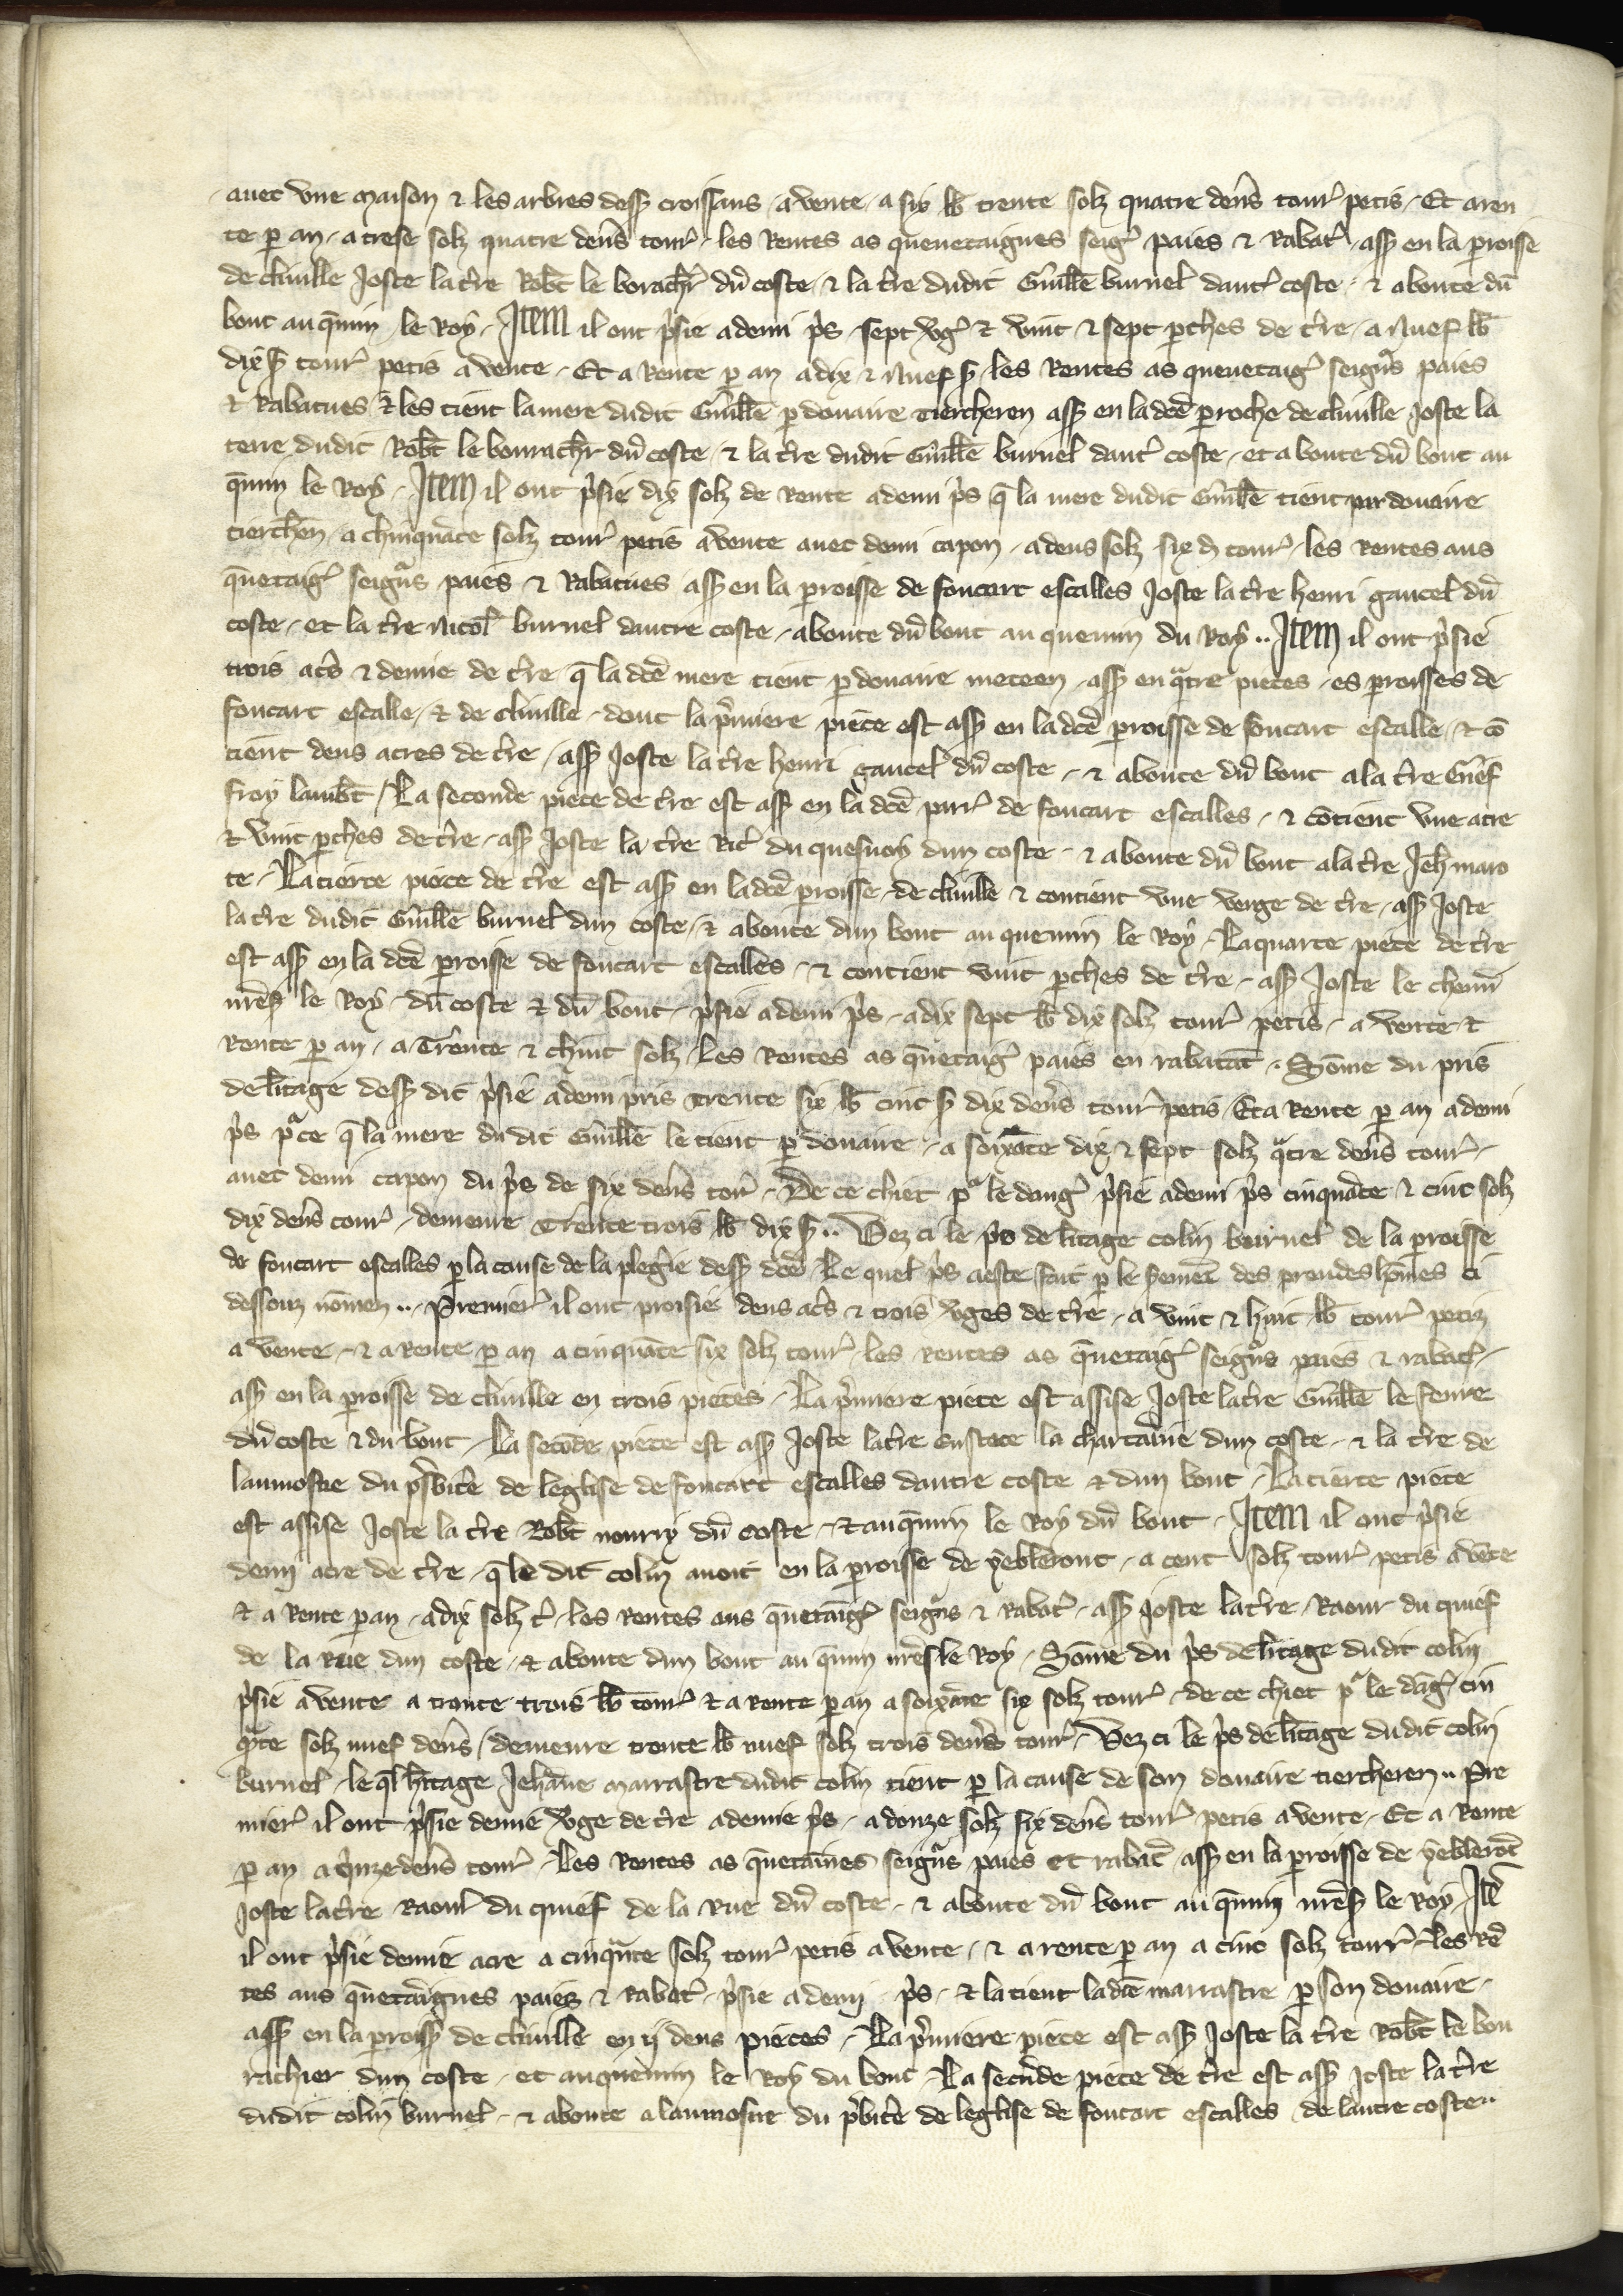 auec vne maison ⁊ les arbres dess9 croissans a vente a six lb trente solz quatre den̄s tour᾽ petis Et a ren
te ꝑ an a trese solz quatre den̄s tour᾽ les Rentes as queuetaignes seig᾽ paies ⁊ Rabat᾽ ass9 en la ꝑroisse
de cliuille Joste la t̄re Rob̄t le borach᾽r dū coste ⁊ la t̄re dudit Guill̄e burnel daut᾽ coste ⁊ aboute dū
bout au q̄min le Roy Item il ont p᾽sie a demi p᾽s sept v᾽g᾽ ⁊ vint ⁊ sept ꝑches de t̄re a Nuef lb
dix s̄ tour᾽ petis a vente Et a Rente ꝑ an a dix ⁊ Nuef s̄ les Rentes as queuetaig᾽ seign̄s paies
⁊ Rabatues ⁊ les tient la mere dudit Guill̄e ꝑ douaire tiercheren ass9 en la dc̄e ꝑroche de cliuille Joste la
terre dudit Rob̄t le bourach᾽r dū coste ⁊ la t̄re dudit Guill̄e burnel daut᾽ coste et aboute dū bout au
q̄min le Roy Item il ont p᾽sie dix solz de Rente a demi p᾽s q̄ la mere dudit Guill̄e tient par douaire
tierch̄en a chinquāte solz tour᾽ petis a vente auec demi capon a deus solz six d tour᾽ les Rentes aus
q̄uetaig᾽ seign̄s paies ⁊ Rabatues ass9 en la ꝑroisse de foucart escalles Joste la t̄re henri gaucel dū
coste et la t̄re Nicol᾽ burnel dautre coste aboute dū bout au quemin du Roy .. Item il ont p᾽sie
trois ac᾽s ⁊ demie de t̄re q̄ la dc̄e mere tient ꝑ douaire meteen ass9 en q̄tre pieces es ꝑroisses de
foucart escalle ⁊ de cliuille dont la p᾽miere piece est ass9 en la dc̄e ꝑroisse de foucart escalle ⁊ cō
tient deus acres de t̄re ass9 Joste la t̄re henri gaucel dū coste ⁊ aboute dū bout a la t̄re Gief
froy lamb̄t La seconde piece de t̄re est ass9 en la dc̄e par᾽ de foucart escalles ⁊ cōtient vne acre
⁊ vint ꝑches de t̄re ass9 Joste la t̄re Ric᾽ du quesnoy dun coste ⁊ aboute dū bout a la t̄re Jeh maro
te La tierce piece de t̄re est ass9 en la dc̄e ꝑroisse de cliuille ⁊ contient vne verge de t̄re ass9 Joste
la t̄re dudit Guill̄e burnel dun coste ⁊ aboute dun bout au quemin le Roy La quarte piece de t̄re
est ass9 en la dc̄e ꝑroisse de foucart escalles ⁊ contient vint ꝑches de t̄re ass9 Joste le chemī
nr̄es9 le Roy dū coste ⁊ dū bout p᾽sie a demi p᾽s a dix sept lb dix solz tour᾽ petis a vente ⁊
Rente ꝑ an a Trente ⁊ chinc solz les Rentes as q̄uetaig᾽ paies en rabatāt Sōme du pris
de lh̄itage dess9 dit p᾽sie a demi pris trente six lb cinc s̄ dix den̄s tour᾽ petis Et a Rente ꝑ an a demi
p᾽s p᾽ ce q̄ la mere du dit Guill̄e le tient ꝑ douaire a soixāte dix ⁊ sept solz q̄tre den̄s tour᾽
auec demi capon du p᾽s de six den̄s tor᾽ De ce chiet p᾽ le dang᾽ p᾽sie a demi p᾽s cinquāte ⁊ cinc solz
dix den̄s tour᾽ demeure Trente trois lb dix s̄ .. Vez ci le p᾽s de lh̄itage colin burnel de la ꝑroisse
de foucart escalles ꝑ la cause de la plegerie dess9 dc̄e Le quel p᾽s a este fait ꝑ le sermēt des preudes hōmes ci
dessouz nōmen .. Premier᾽ il ont proisie deus ac᾽s ⁊ trois v᾽ges de t̄re a vint ⁊ huit lb tour᾽ petiz
a vente ⁊ a Rente ꝑ an a cinquāte six solz tour᾽ les rentes as q̄uetaig᾽ seign̄s paies ⁊ rabat᾽
ass9 en la ꝑroisse de cliuille en trois pieces La p᾽miere piece est assise Joste la t̄re Guill̄e le feure
dū coste ⁊ du bout La secōde piece est ass9 Joste la t̄re eustace la chartaine dun coste ⁊ la t̄re de
laumosne du p᾽sbit̄e de leglise de foucart escalles dautre coste ⁊ dun bout La tierce piece
est assise Joste la t̄re Rob̄t nourry dū coste ⁊ au q̄min le Roy dū bout Item il ont p᾽sie
demi acre de t̄re q̄ le dit colin auoit en la ꝑroisse de yebleront a cent solz tour᾽ petis a vēte
⁊ a Rente ꝑ an a dix solz t᾽ les Rentes aus q̄uetaig᾽ seign̄s ⁊ Rabat᾽ ass9 Joste la t̄re Raour du quief
de la Rue dun coste ⁊ aboute dun bout au q̄min nr̄es le Roy Sōme du p᾽s de lh̄itage dudit colin
p᾽sie a vente a trente trois lb tour᾽ ⁊ a Rente ꝑ an a soixāte six solz tour᾽ de ce chiet p᾽ le dāg᾽ cin
q̄te solz nuef den̄s demeure trente lb nuef solz trois den̄s tour᾽ Vez ci le p᾽s de lh̄itage dudit colin
burnel leq̄l h̄itage Jehāne marrastre dudit colin tient ꝑ la cause de son douaire tiercheren .. Pre
mier᾽ il ont p᾽sie demie v᾽ge de t̄re a demie p᾽s a douze solz six den̄s tour᾽ petis a vente Et a Rente
ꝑ an a q᾽nze den̄s tour᾽ Les Rentes as q̄uetaines seign̄s paies et rabat᾽ ass9 en la ꝑroisse de yeblerōt
Joste la t̄re Raoul du quief de la Rue dū coste ⁊ aboute dū bout au q̄min nr̄es9 le Roy Itē
il ont p᾽sie demie acre a cinquāte solz tour᾽ petis a vente ⁊ a rente ꝑ an a cinc solz tour᾽ les rē
tes aus q̄uetaignes paiez ⁊ rabat᾽ p᾽sie a demi p᾽s ⁊ la tient la dc̄e marrastre ꝑ son douaire
ass9 en la ꝑroiss9 de cliuille en ij deus pieces La p᾽miere piece est ass9 Joste la t̄re Rob̄t le bou
rachier dun coste et au quemin le Roy du bout La secūde piece de t̄re est ass9 Joste la t̄re
dudit colin burnel ⁊ aboute a laumosne du p᾽bit̄e de leglise de foucart escalles de lautre coste ..